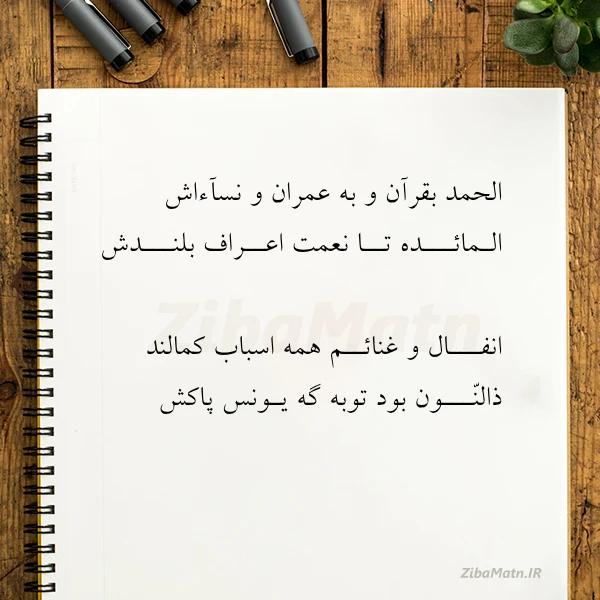 الحمد بقرآن و به عمران و نسآءاش
المائده تا نعمت اعراف بلندش
انفال و غنائم همه اسباب کمالند
ذالنّون بود توبه گه یونس پاکش
ZibaMatn
ZibaMatn.IR